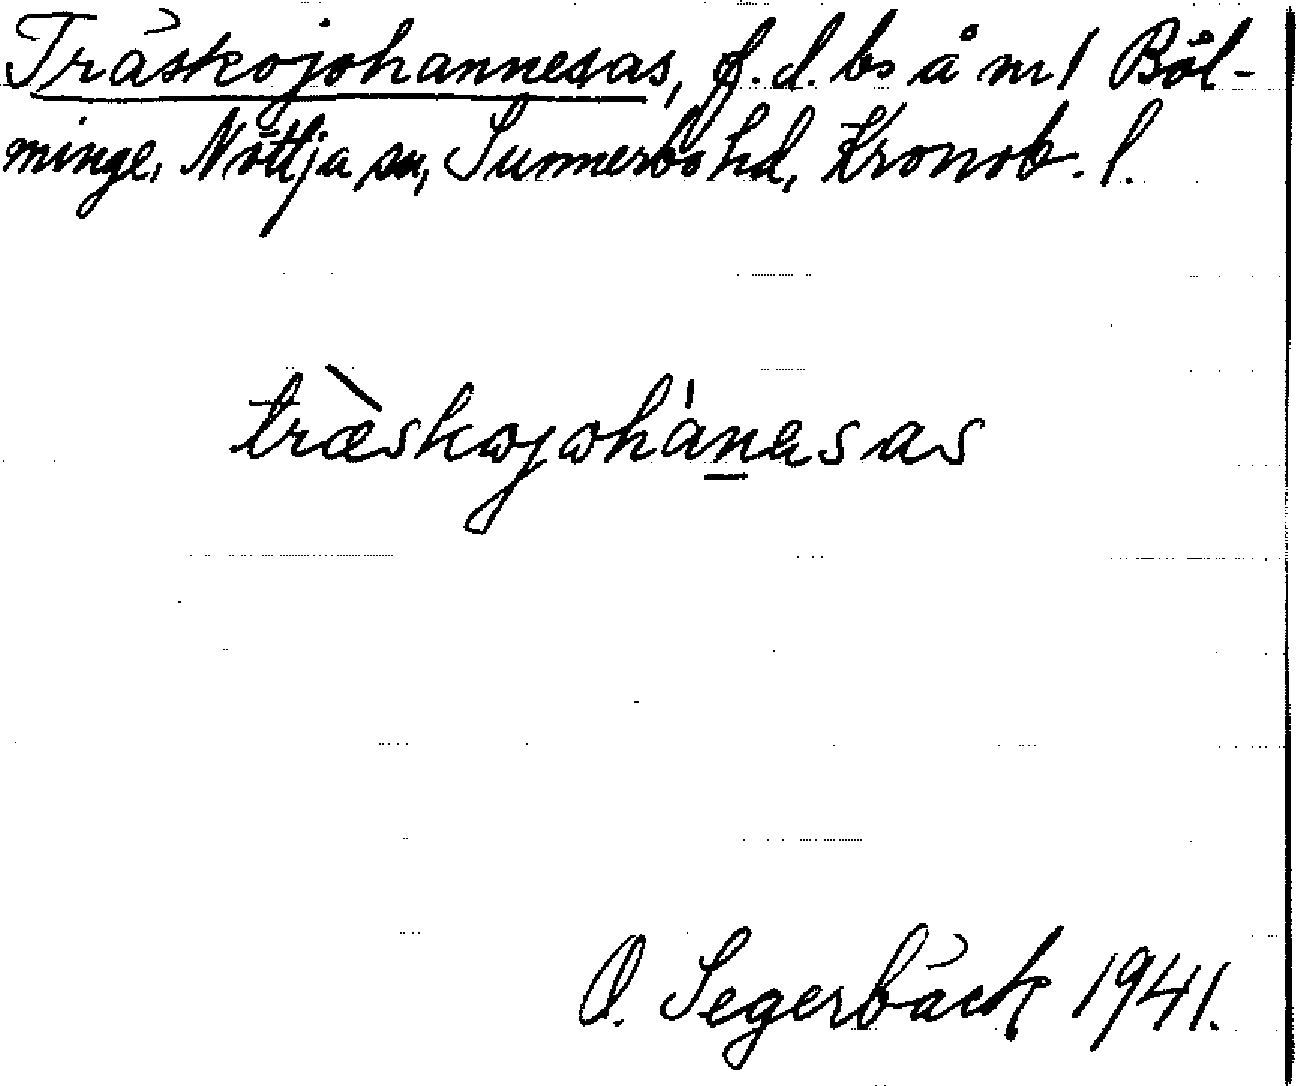 Träskojohannesas, f. d. bs å m 1 Böl-
minge, Nöttja sn, Sunnerbo hd, Kronob. l.
træ̀skωjωhànesas
O. Segerbäck 1941.